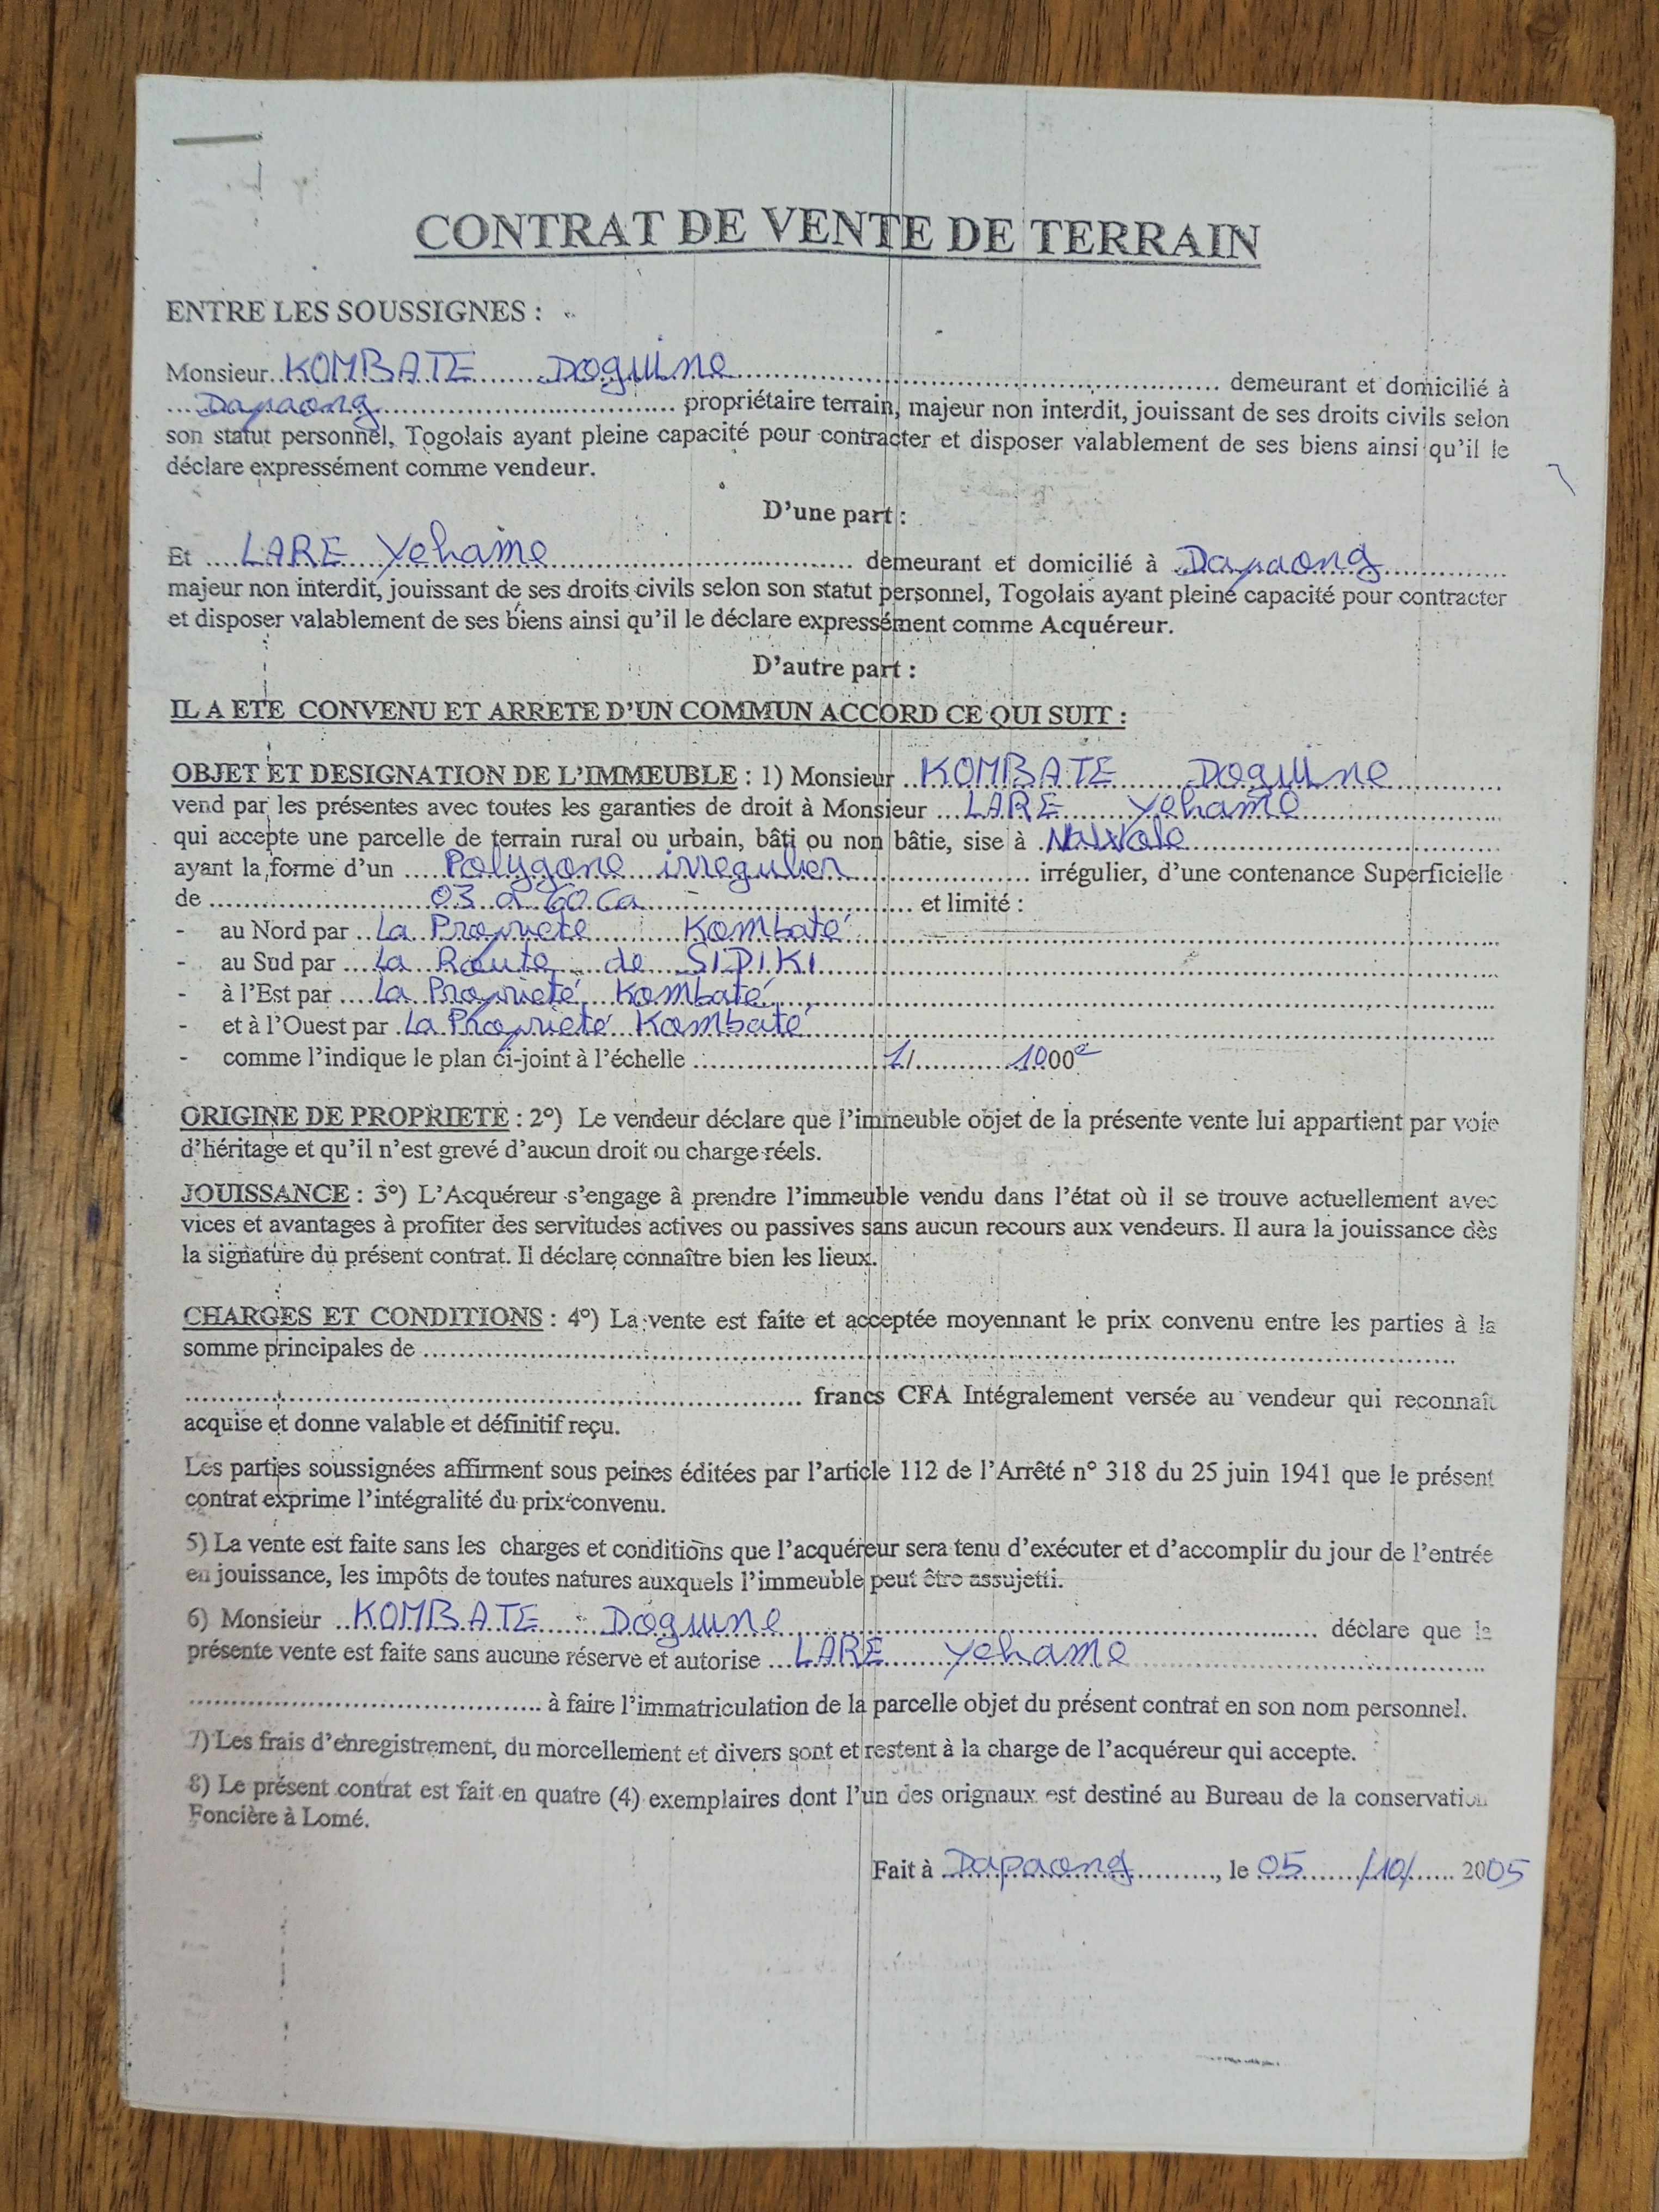 CONTRAT DE VENTE DE TERRAIN
ENTRE LES SOUSSIGNES :
Monsieur..KOMBATE Doguine.......... demeurant et domicilié à
....Dapaong.......... propriétaire terrain, majeur non interdit, jouissant de ses droits civils selon
son statut personnel, Togolais ayant pleine capacité pour contracter et disposer valablement de ses biens ainsi qu'il le
déclare expressément comme vendeur.
D'une part :
Et ....LARE Yehame.......... demeurant et domicilié à ..Dapaong..........
majeur non interdit, jouissant de ses droits civils selon son statut personnel, Togolais ayant pleine capacité pour contracter
et disposer valablement de ses biens ainsi qu'il le déclare expressément comme Acquéreur.
D'autre part :
IL A ETE CONVENU ET ARRETE D'UN COMMUN ACCORD CE QUI SUIT :
OBJET ET DESIGNATION DE L'IMMEUBLE : 1) Monsieur ..KOMBATE Doguine..........
vend par les présentes avec toutes les garanties de droit à Monsieur ...LARE Yehame..........
qui accepte une parcelle de terrain rural ou urbain, bâti ou non bâtie, sise à ..........
ayant la forme d'un ....Polygone irregulier.......... irrégulier, d'une contenance Superficielle
de ..........03 a 60 ca.......... et limité :
- au Nord par ..La Propriete Kombaté..........
- au Sud par ....La Route de SIDIKI..........
- à l'Est par ....La Proprieté Kombaté..........
- et à l'Ouest par .La Proprieté Kombaté..........
- comme l'indique le plan ci-joint à l'échelle ..........1/..........1000e
ORIGINE DE PROPRIETE : 2°) Le vendeur déclare que l'immeuble objet de la présente vente lui appartient par voie
d'héritage et qu'il n'est grevé d'aucun droit ou charge réels.
JOUISSANCE : 3°) L'Acquéreur s'engage à prendre l'immeuble vendu dans l'état où il se trouve actuellement avec
vices et avantages à profiter des servitudes actives ou passives sans aucun recours aux vendeurs. Il aura la jouissance dès
la signature du présent contrat. Il déclare connaître bien les lieux.
CHARGES ET CONDITIONS : 4°) La vente est faite et acceptée moyennant le prix convenu entre les parties à la
somme principales de ..........
.......... francs CFA Intégralement versée au vendeur qui reconnaît
acquise et donne valable et définitif reçu.
Les parties soussignées affirment sous peines éditées par l'article 112 de l'Arrêté n° 318 du 25 juin 1941 que le présent
contrat exprime l'intégralité du prix convenu.
5) La vente est faite sans les charges et conditions que l'acquéreur sera tenu d'exécuter et d'accomplir du jour de l'entrée
en jouissance, les impôts de toutes natures auxquels l'immeuble peut être assujetti.
6) Monsieur ..KOMBATE Doguine.......... déclare que la
présente vente est faite sans aucune réserve et autorise ...LARE Yehame..........
.......... à faire l'immatriculation de la parcelle objet du présent contrat en son nom personnel.
7) Les frais d'enregistrement, du morcellement et divers sont et restent à la charge de l'acquéreur qui accepte.
8) Le présent contrat est fait en quatre (4) exemplaires dont l'un des orignaux est destiné au Bureau de la conservation
Foncière à Lomé.
Fait à Dapaong.........., le 05....../10/...... 2005